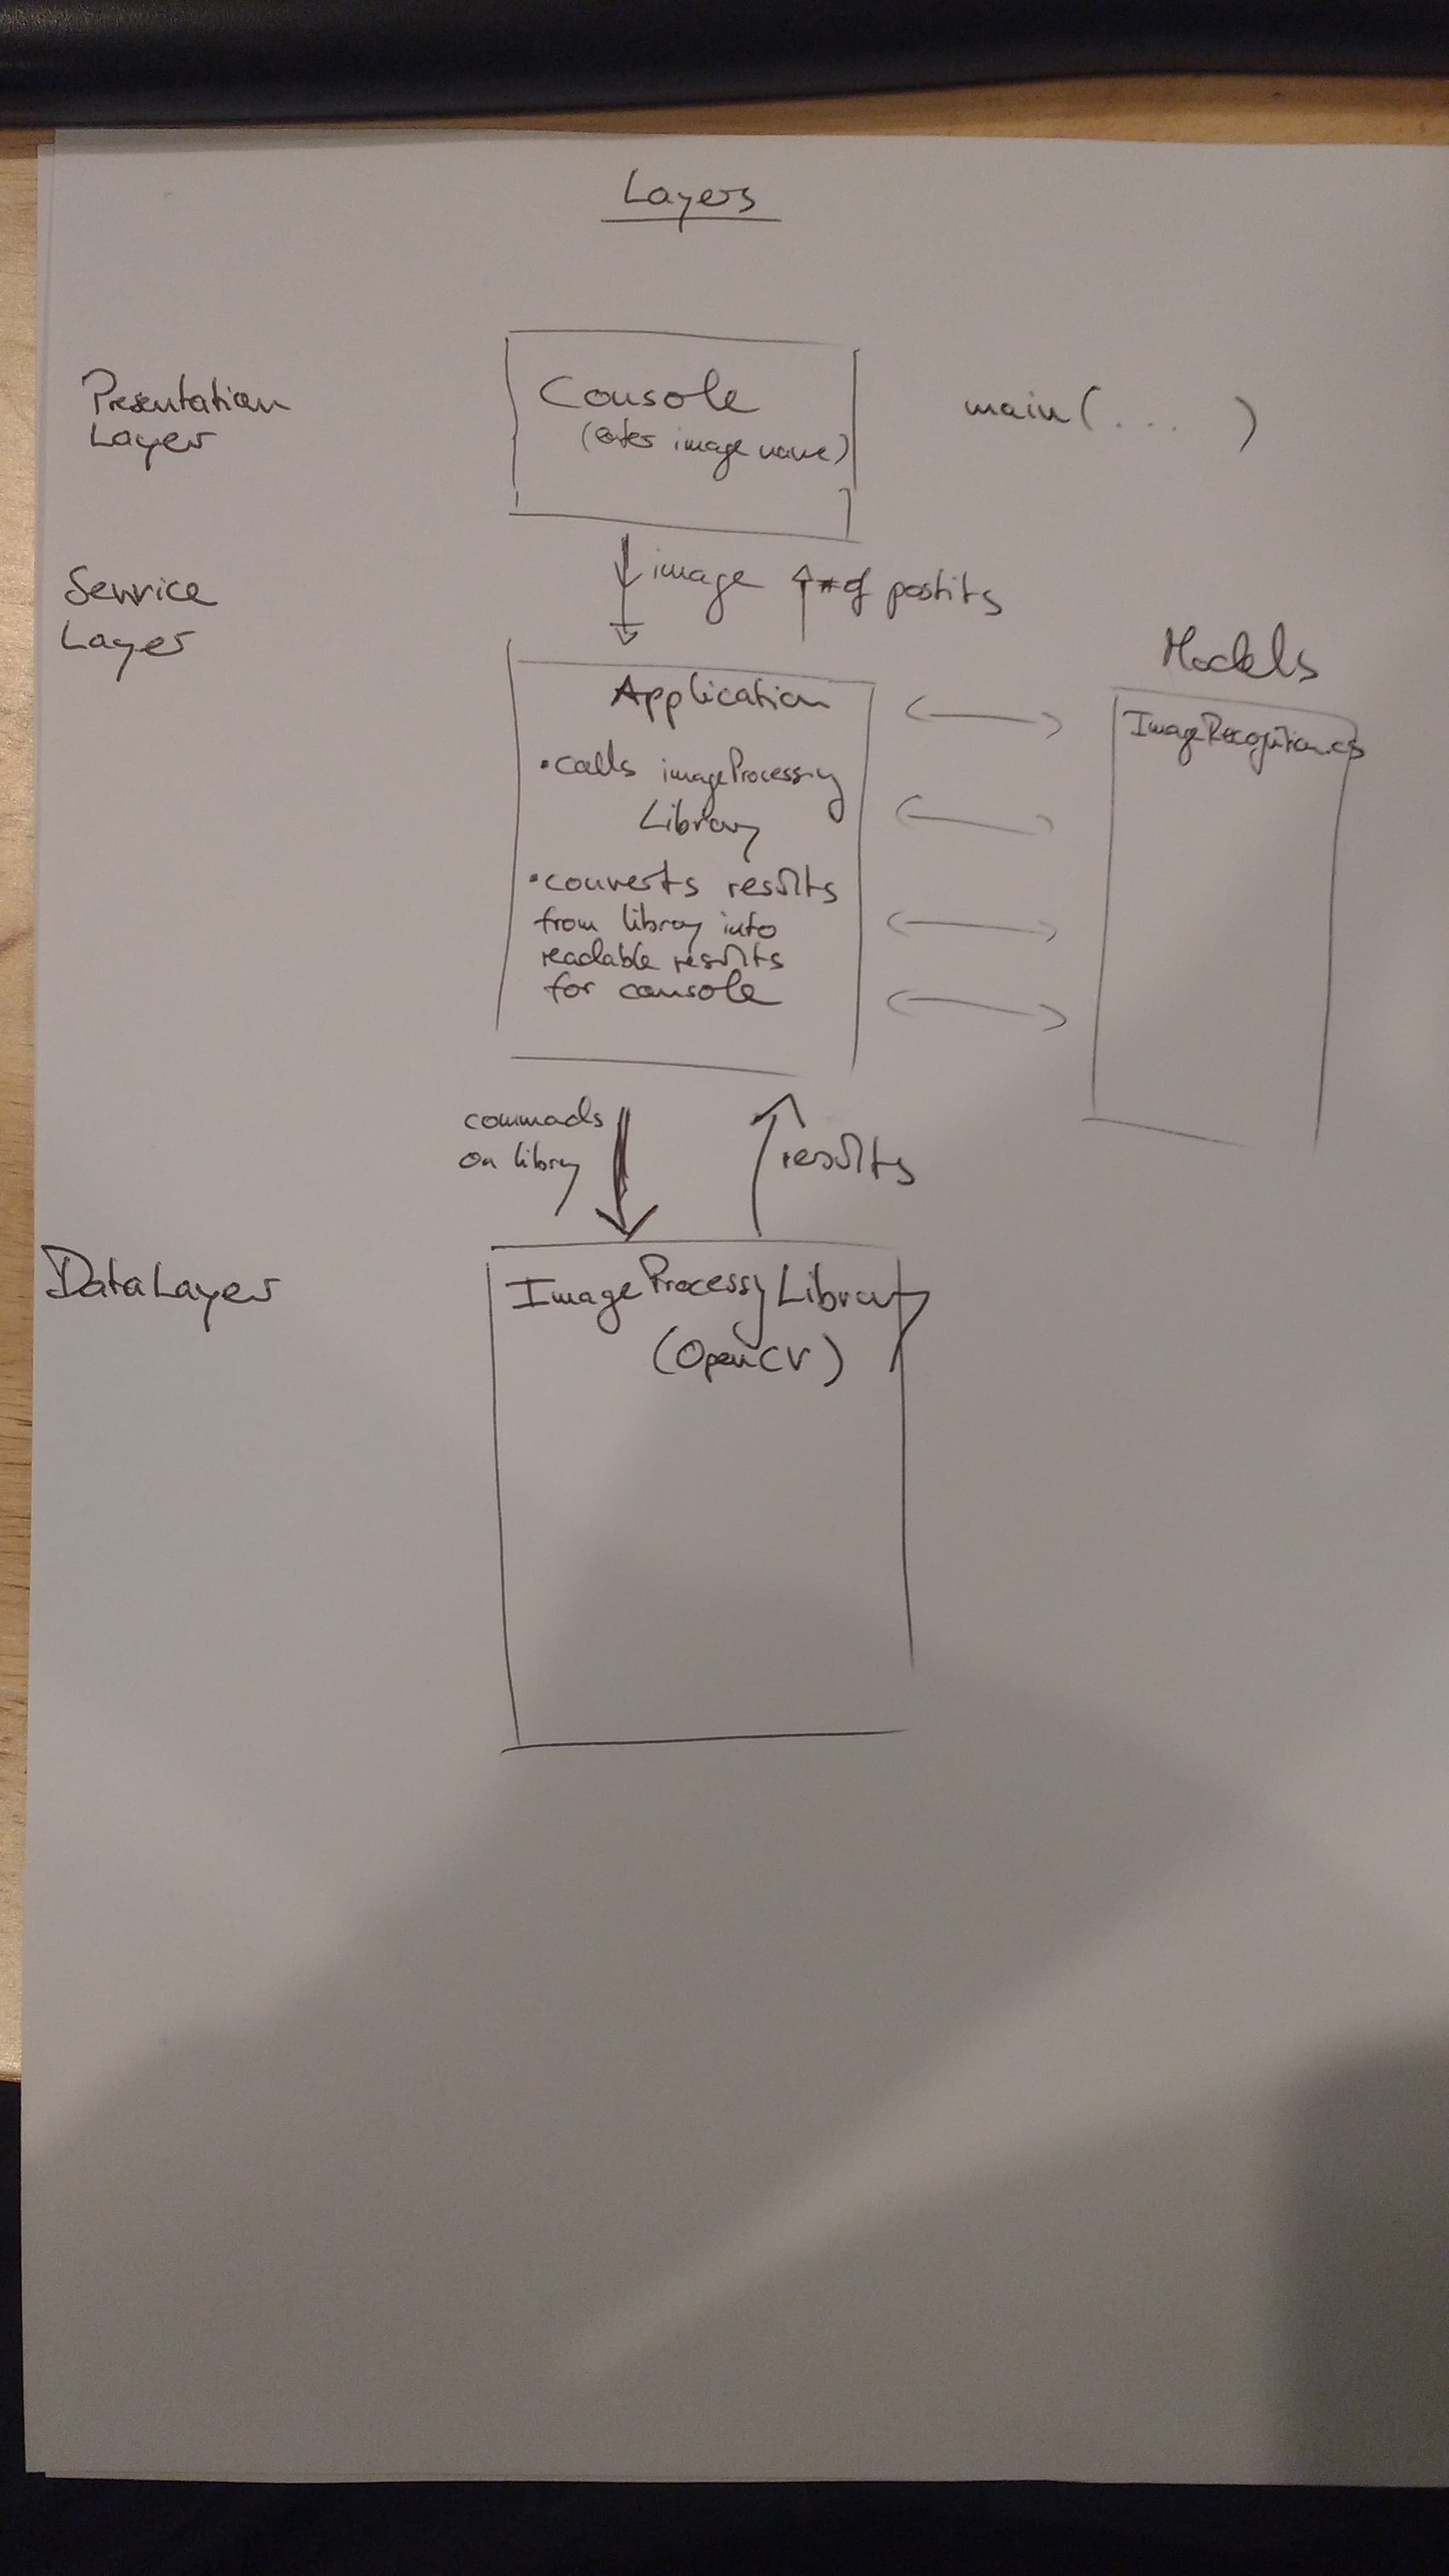 Layers
Presentation
Layer
Console
(enter image name)
main(.... )
Service
Layer
image
# of postits
Models
Application
• calls imageProcessing
Library
• converts results
from library into
readable results
for console
ImageRecognition.cs
commads
on library
results
DataLayer
ImageProcessing Library
(OpenCV)